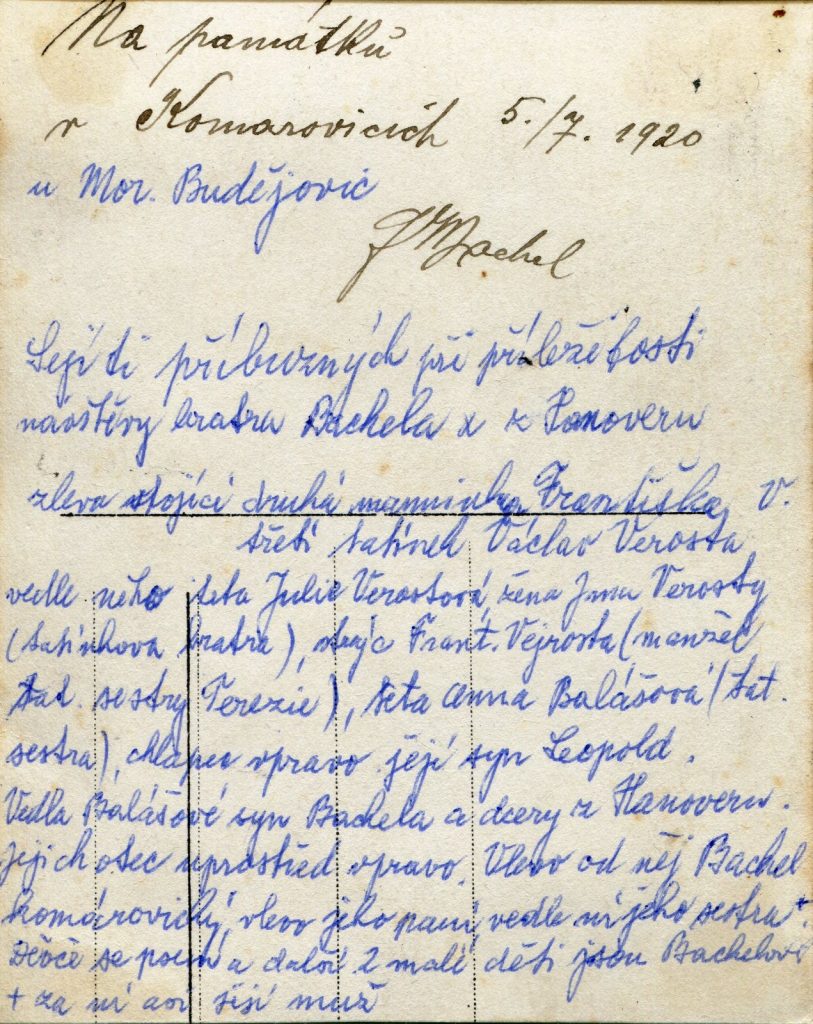 Na památku
v Komarovicích 5./7. 1920
u Mor. Budějovic
Bachel
Sejití příbuzných při příležitosti
návštěvy bratra Bachela x z Hanoveru
zleva stojící druhá maminka Františka V.
třetí tatínek Václav Verosta
vedle něho teta Julie Verostová, žena Jana Verosty
(tatínkova bratra), strýc Frant. Vejrosta (manžel
tat. sestry Terezie), teta Anna Balášová (tat.
sestra), chlapec vpravo její syn Leopold.
Vedla Balášové syn Bachela a dcery z Hanoveru.
Jejich otec uprostřed vpravo. Vlevo od něj Bachel
Komárovický, vlevo jeho paní, vedle ní jeho sestra +.
Děvče se psem a další 2 malé děti jsou Bachelovi
+ za ní asi její muž